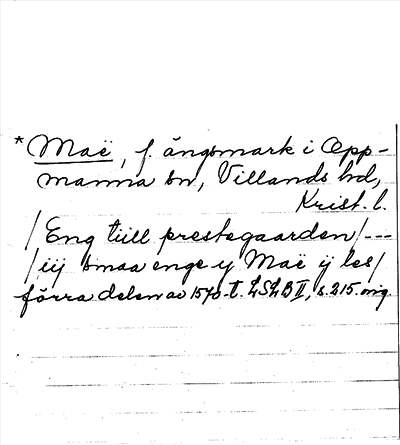 * Maë, f. ängsmark i Opp-
manna sn, Villands hd,
Krist. l.
/Eng tiill prestegaarden/---
/iij smaa enge y Maë ÿ les/
förra delen av 1570-t. LSLB II, s. 215. orig